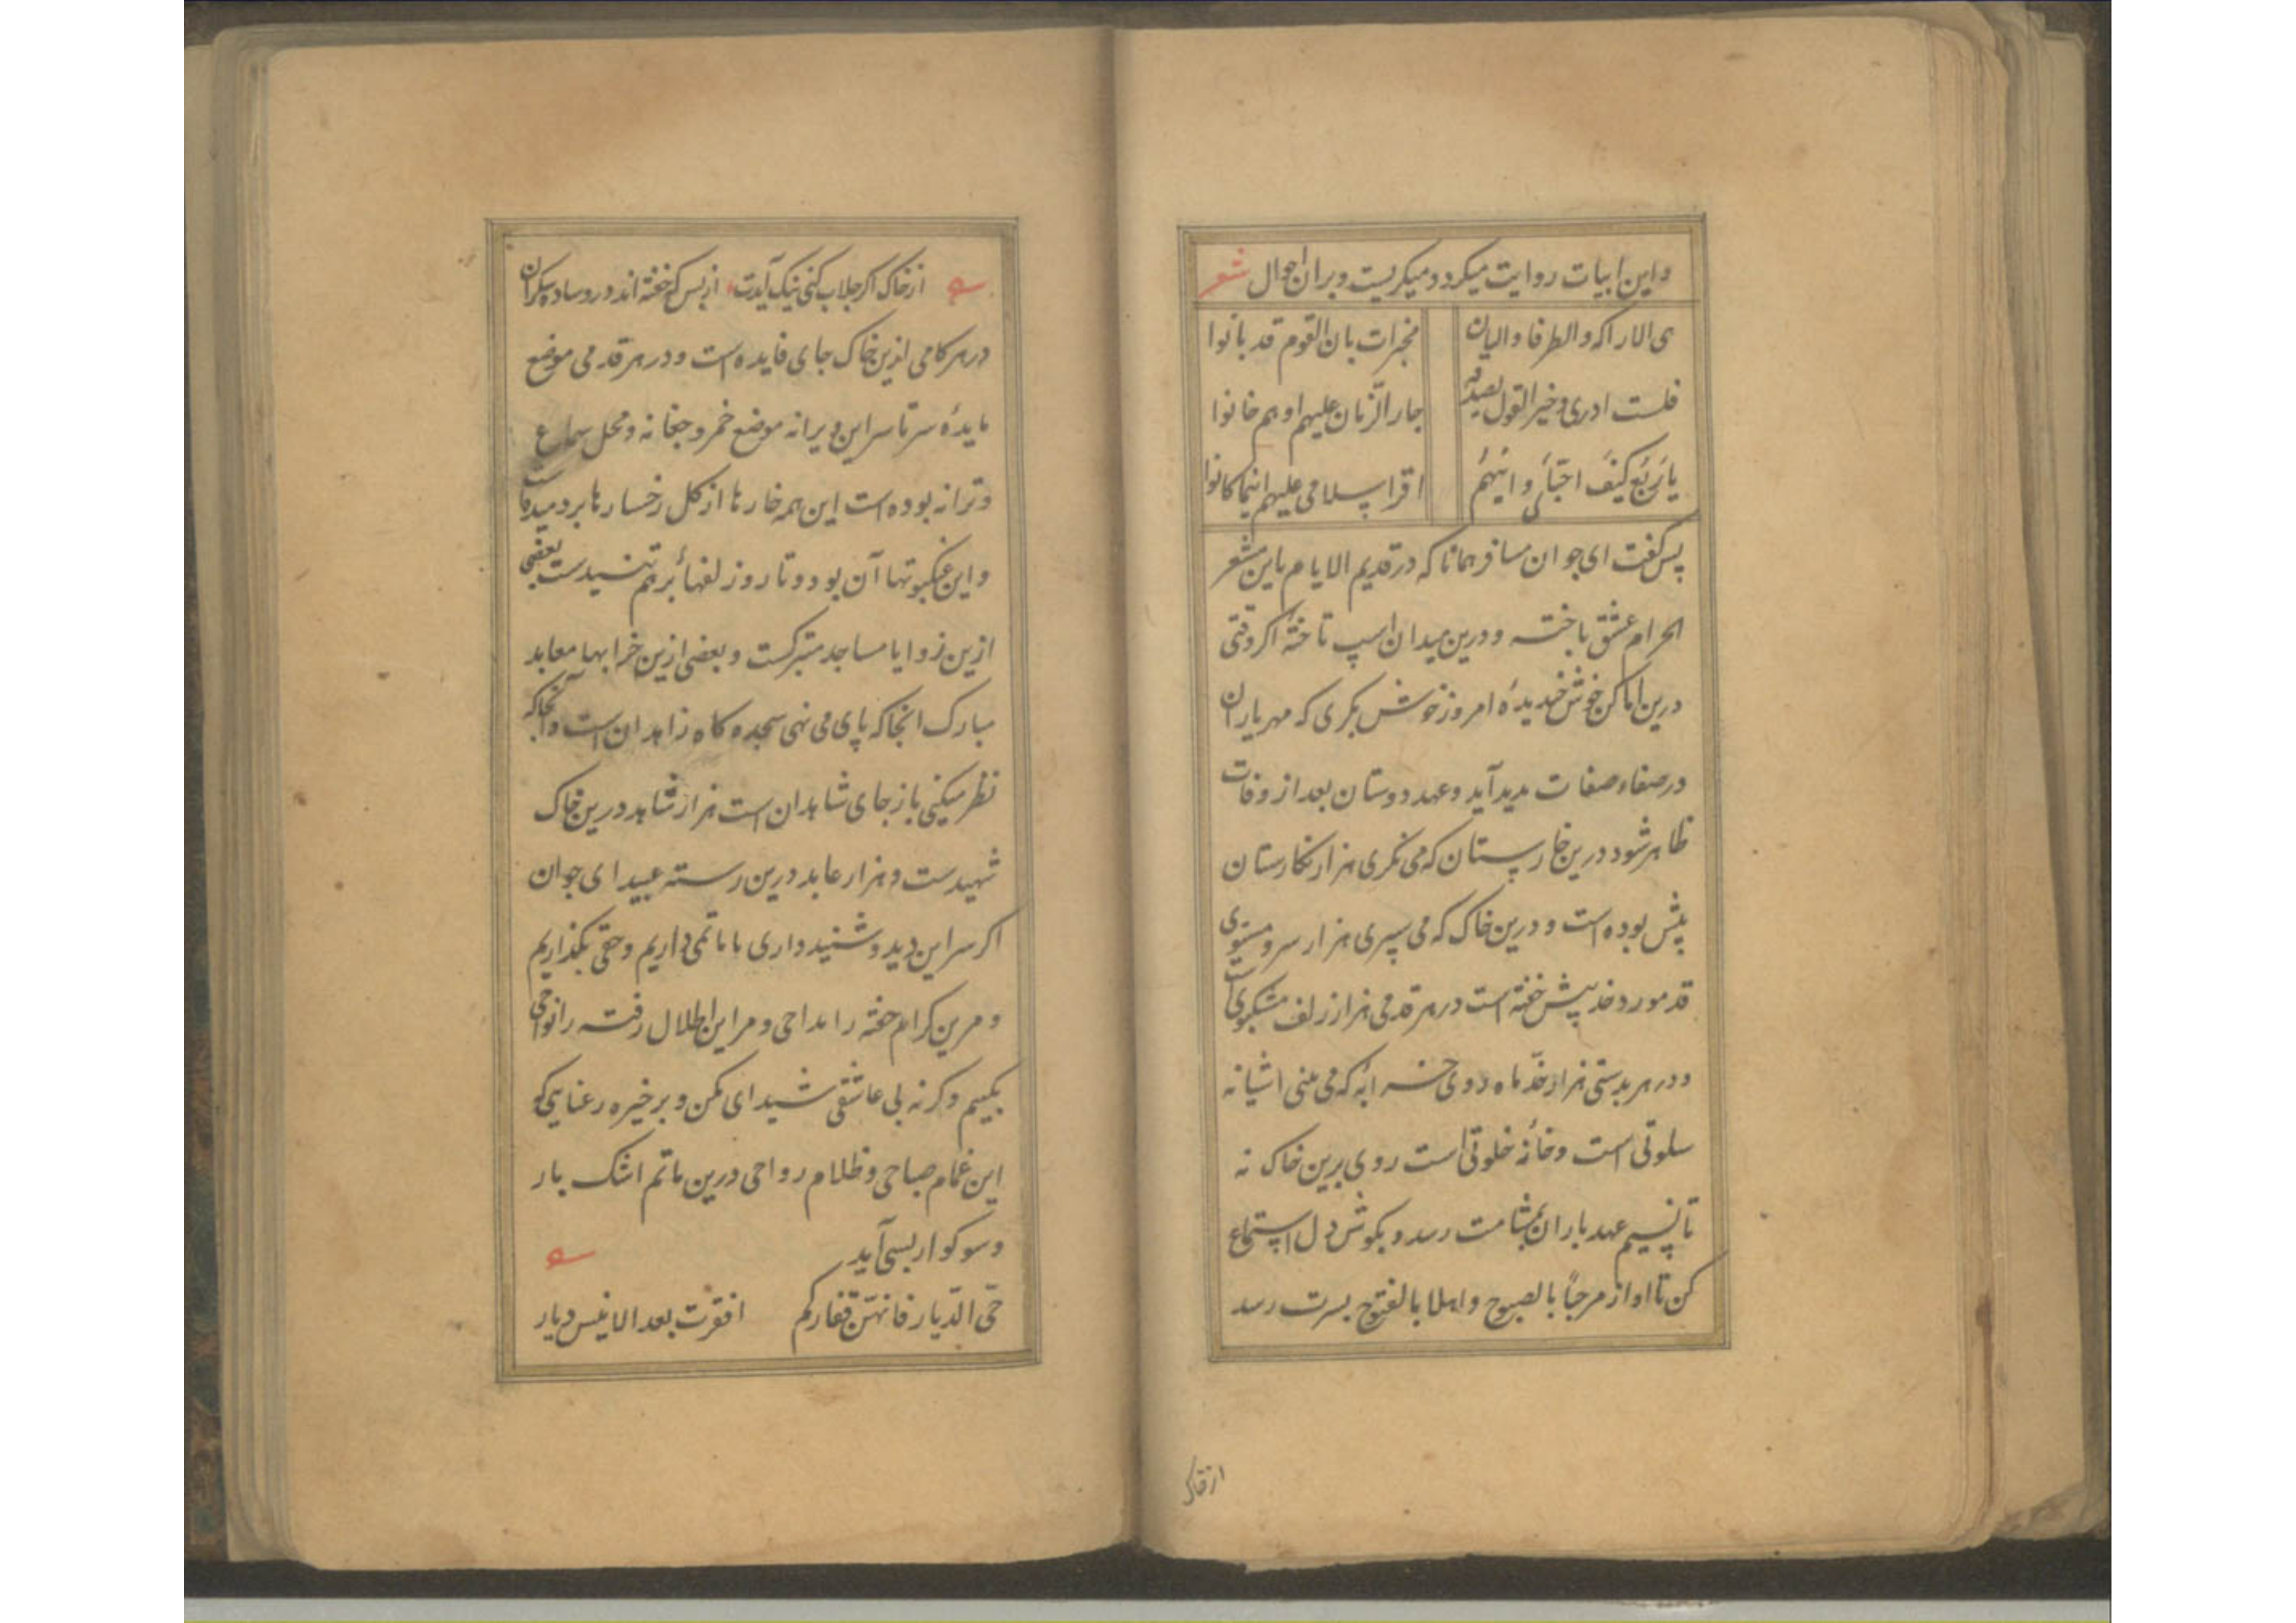 و این ابیات روایت میکرد و میکریست و بران احوال شعر
ی الاراکه و الطرفا و البان مخبرات بان القوم قد بانوا
فلست ادری و خیر القول یصدقه جار الزّمان علیهم اوهم خانوا
یا رَبعَ کیفَ احبّائی و اینهُم اقرا سلامی علیهم اینما کانوا
پس کفت ای جوان مسافر همانا که در قدیم الایام باین مشعر
الحرام عشق باخته و درین میدان اسپ تاختهٔ اکر وقتی
درین اماکن خوش خندیدهٔ امروز خوش بکری که مهر یاران
در صفاء صفات بدید آید و عهد دوستان بعد از وفات
ظاهر شود درین خارستان که می نکری هزار نکارستان
پیش بوده است و درین خاک که می سپری هزار سرو مستوی
قد مورد خد پیش خفته است در هر قدمی هزار زلف مشکبوی است
و در هر بدستی هزار خدّ ماه روی خرابهٔ که می بینی اشیانه
سلوتی است و خانهٔ خلوتی است روی برین خاک نه
تا نسیم عهد یاران بمشامت رسد و بکوش دل استماع
کن تا اواز مرحباً بالصبوح و اهلا بالفتوح بسرت رسد
از خاک
از خاک اکر جلاب کنی نیک آیدت از بس که خفته اند درو ساده شکران
در هر کامی ازین خاک جای فایده است و در هر قدمی موضع
مایدهٔ سرتاسر این ویرانه موضع خمر و چغانه و محل سماع
و ترانه بوده است این همه خارها از کل رخسارها بردمیده است
و این عنکبوتها آن پود و تار و زلفها بر هم تنیدست بعضی
ازین زوایا مساجد متبرکست و بعضی ازین خرابها معابد
مبارک انجا که پای می نهی سجده کاه زاهدان است و آنجا که
نظر میکنی باز جای شاهدان است هزار شاهد درین خاک
شهیدست و هزار عابد درین رسته عبید ای جوان
اکر سر این دید و شنید داری با ما تا ماتمی داریم و حقی بکذاریم
و مرین کرام خفته را مداحی و مر این اطلال رفته را نواحی
بکنیم و کرنه بی عاشقی شیدای مکن و بر خیره رعنایی مکو
این غمام صباحی و ظلام رواحی درین ماتم اشک بار
و سوکوار بسی آید
حیّ الدّیار فانهنّ قفارکم افقرت بعد الانیس دیار